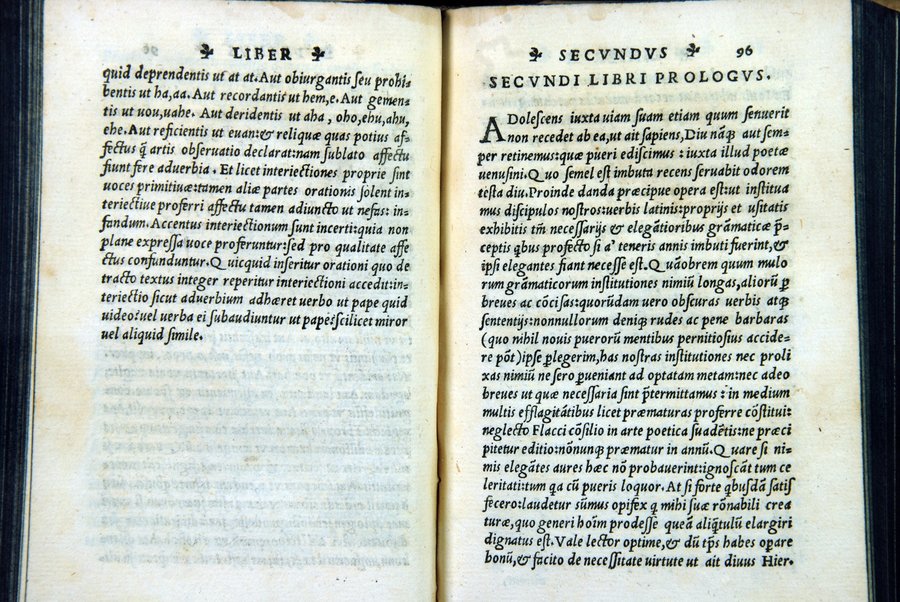 LIBER
quid deprendentis ut at at. Aut obiurgantis seu prohi-
bentis ut ha,aa. Aut recordantis ut hem,e. Aut gemen-
tis ut uou,uahe. Aut deridentis ut aha, oho,ehu,ahu,
ehe. Aut reficientis ut euan:& reliquæ quas potius af-
fectus q̃ artis obseruatio declarat:nam sublato affectu
fiunt fere aduerbia. Et licet interiectiones proprie sint
uoces primitiuæ:tamen aliæ partes orationis solent in-
teriectiue proferri affectu tamen adiuncto ut nefas: in-
fandum. Accentus interiectionum sunt incerti:quia non
plane expressa uoce proferuntur:sed pro qualitate affe
ctus confunduntur. Quicquid inseritur orationi quo de
tracto textus integer reperitur interiectioni accedit:in-
teriectio sicut aduerbium adhæret uerbo ut pape quid
uideo:uel uerba ei subaudiuntur ut pape:scilicet miror
uel aliquid simile.
SECVNDVS 96
SECVNDI LIBRI PROLOGVS.
ADolescens iuxta uiam suam etiam quum senuerit
non recedet ab ea,ut ait sapiens,Diu nãq̃ aut sem-
per retinemus:quæ pueri ediscimus: iuxta illud poetæ
uenusini. Quo semel est imbuta recens seruabit odorem
testa diu. Proinde danda præcipue opera est:ut institua
mus discipulos nostros:uerbis latinis:proprijs et usitatis
exhibitis tm̃ necessarijs & elegãtioribus grãmaticæ p̃-
ceptis qbus profecto si a' teneris annis imbuti fuerint,&
ipsi elegantes fiant necesse est. Quãobrem quum mulo
rum grãmaticorum institutiones nimiũ longas,aliorũ ꝑ
breues ac cõcisas:quorũdam uero obscuras uerbis atq̃
sententijs:nonnullorum deniq̃ rudes ac pene barbaras
(quo nihil nouis puerorũ mentibus pernitiosius accide-
re põt)ipse ꝑlegerim,has nostras institutiones nec proli
xas nimiũ ne sero ꝑueniant ad optatam metam:nec adeo
breues ut quæ necessaria sint p̃termittamus: in medium
multis efflagitãtibus licet præmaturas proferre cõstitui:
neglecto Flacci cõsilio in arte poetica suadẽtis:ne præci
pitetur editio:nõnunq̃ præmatur in annũ. Quare si ni-
mis elegãtes aures hæc nõ probauerint:ignoscãt tum ce
leritati:tum qa cũ pueris loquor. At si forte qbusdã satis
fecero:laudetur sũmus opifex q mihi suæ rõnabili crea
turæ,quo generi hoĩm prodesse queã aliq̃tulũ elargiri
dignatus est. Vale lector optime,& dũ tp̃s habes oꝑare
bonũ,& facito de necessitate uirtute ut ait diuus Hier.